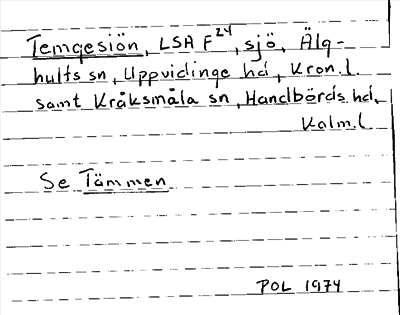 Temgesjön, LSA F24, sjö, Älg-
hults sn, Uppvidinge hd, Kron.l.
samt Kråksmåla sn, Handbörds hd,
Kalm.l
Se Tämmen
POL 1974